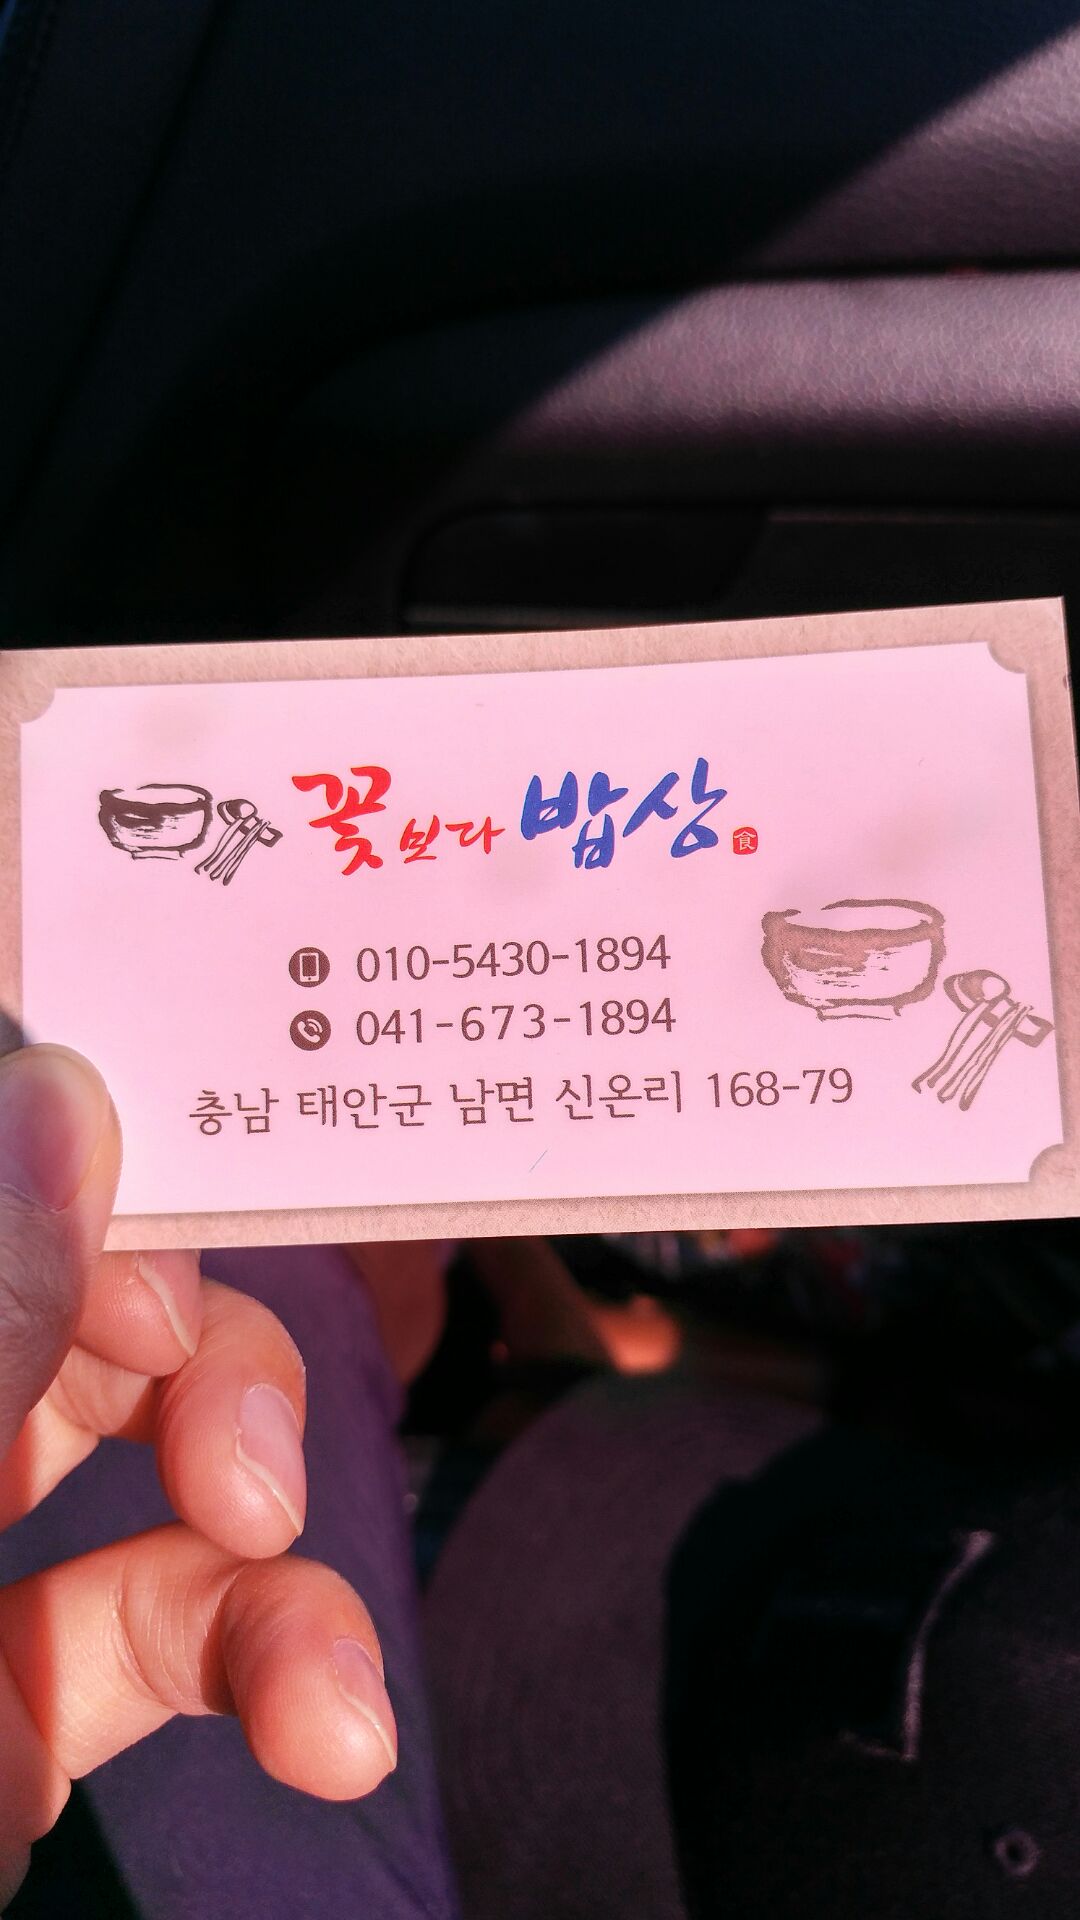 꽃보다 밥상 食
010-5430-1894
041-673-1894
충남 태안군 남면 신온리 168-79